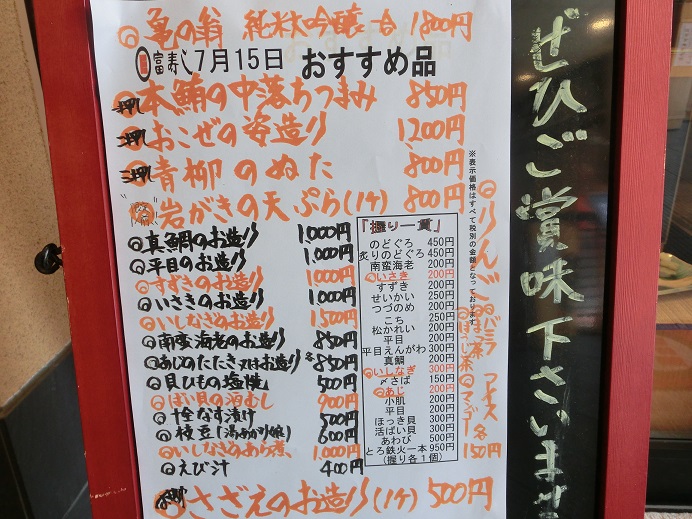 ◎亀の翁 純米大吟醸 一合 1,800円
富寿し 7月15日 おすすめ品
一押し 本鮪の中落ちつまみ 850円
二押し おこぜの姿造り 1,200円
三押し 青柳のぬた 800円
岩がきの天ぷら(1ケ) 800円
◎真鯛のお造り 1,000円
◎平目のお造り 1,000円
◎すずきのお造り 1,000円
◎いさきのお造り 1,000円
◎いしなぎのお造り 1,500円
◎南蛮海老のお造り 850円
◎あじのたたき又はお造り 各850円
◎貝ひもの塩焼 500円
◎ばい貝の酒むし 900円
◎十全なす漬け 500円
◎枝豆(湯あがり娘) 600円
◎いしなぎのあら煮 1,000円
◎えび汁 400円
さざえのお造り(1ケ) 500円
「握り一貫」
のどぐろ 450円
炙りのどぐろ 450円
南蛮海老 200円
◎いさき 200円
すずき 200円
せいかい 250円
つづのめ 200円
こち 250円
松かれい 200円
平目 200円
平目えんがわ 300円
真鯛 200円
◎いしなぎ 300円
〆さば 150円
◎あじ 200円
小肌 200円
平目 200円
ほっき貝 300円
活ばい貝 300円
あわび 500円
とろ鉄火一本 950円
(握り各1個)
※表示価格はすべて税別の金額となっております。
◎りんご
◎バニラ
◎ほうじ茶
◎マンゴー
アイス 各150円
ぜひご賞味下さいませ